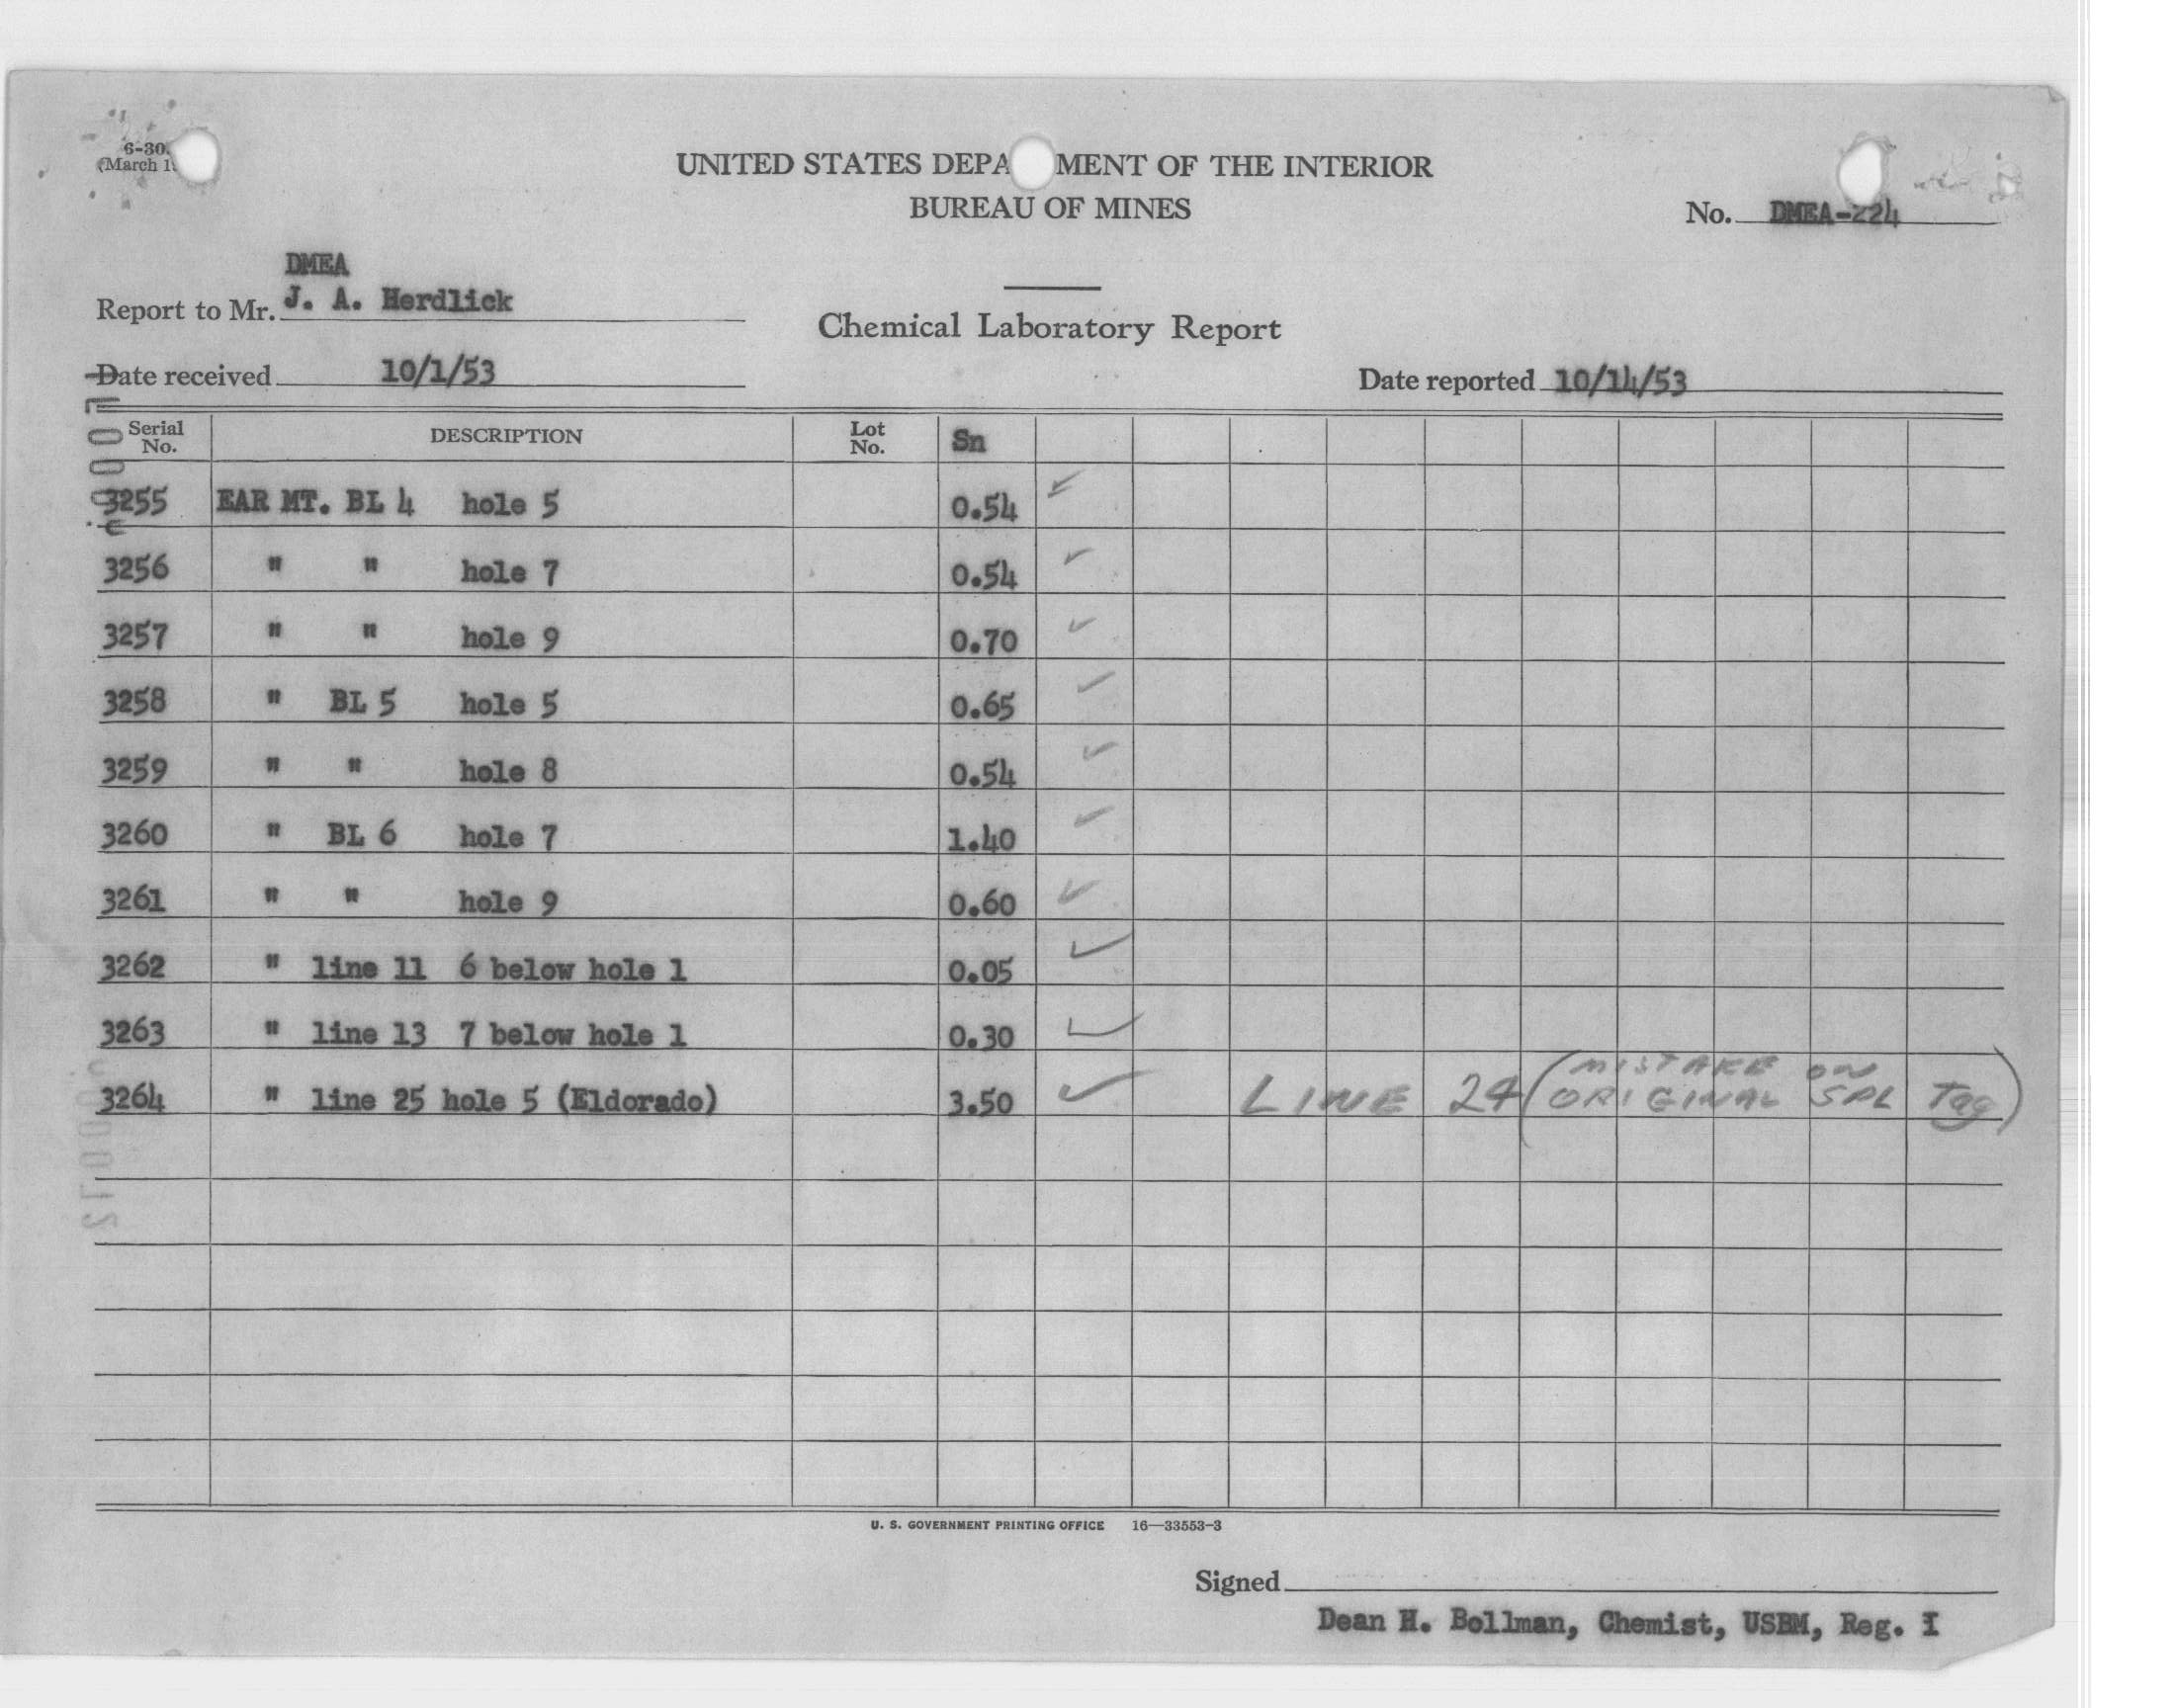 6-30
(March 1
UNITED STATES DEPA MENT OF THE INTERIOR
BUREAU OF MINES
No. DMEA-224
DMEA
Report to Mr. J. A. Herdlick
Chemical Laboratory Report
Date received 10/1/53
Date reported 10/14/53
Serial No. DESCRIPTION Lot No. Sn
3255 EAR MT. BL 4 hole 5 0.54 ✓
3256 " " hole 7 0.54 ✓
3257 " " hole 9 0.70 ✓
3258 " BL 5 hole 5 0.65 ✓
3259 " " hole 8 0.54 ✓
3260 " BL 6 hole 7 1.40 ✓
3261 " " hole 9 0.60 ✓
3262 " line 11 6 below hole 1 0.05 ✓
3263 " line 13 7 below hole 1 0.30 ✓
3264 " line 25 hole 5 (Eldorado) 3.50 ✓ LINE 24 (MISTAKE ON ORIGINAL SPL Tag)
U. S. GOVERNMENT PRINTING OFFICE 16—33553-3
Signed
Dean H. Bollman, Chemist, USBM, Reg. I